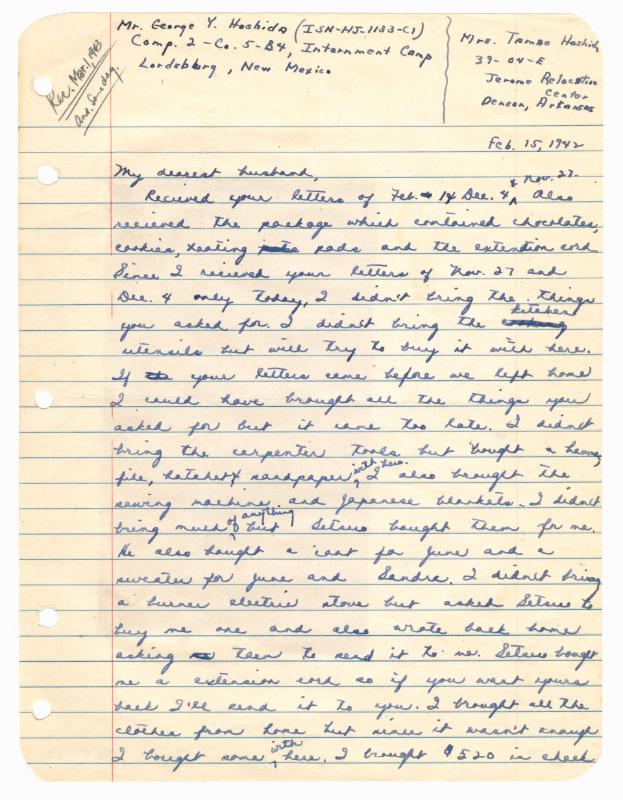 Mr. George Y. Hoshida (ISN-HJ-1133-CI)
Comp. 2-Co. 5-B4, Internment Camp
Lordsburg, New Mexico
Mrs. Tamae Hoshida
39-04-E
Jerome Relocation
Center
Denson, Arkansas
Rec. Mar. 1, 1943
Ans. Same day.
Feb. 15, 1942
My dearest husband,
Recieved your letters of Feb. 14 Dec. 4 & Nov. 27. Also
recieved the package which contained chocolates,
cookies, heating pads and the extention cord.
Since I recieved your letters of Nov. 27 and
Dec. 4 only today, I didn't bring the things
you asked for. I didn't bring the kitchen
utensils but will try to buy it with here.
If your letters came before we left home
I could have brought all the things you
asked for but it came too late. I didnt
bring the carpenter tools but bought a hammer,
file, hatchet & sandpaper with here. I also brought the
sewing machine and Japanese blankets. I didnt
bring much of anything but Setsuo bought them for me.
He also bought a coat for June and a
sweater for June and Sandra. I didnt bring
a burner electric stove but asked Setsuo to
buy me one and also wrote back home
asking them to send it to me. Setsuo bought
me a extension cord so if you want yours
back I'll send it to you. I brought all the
clothes from home but since it wasn't enough
I bought some with here. I brought $520 in check